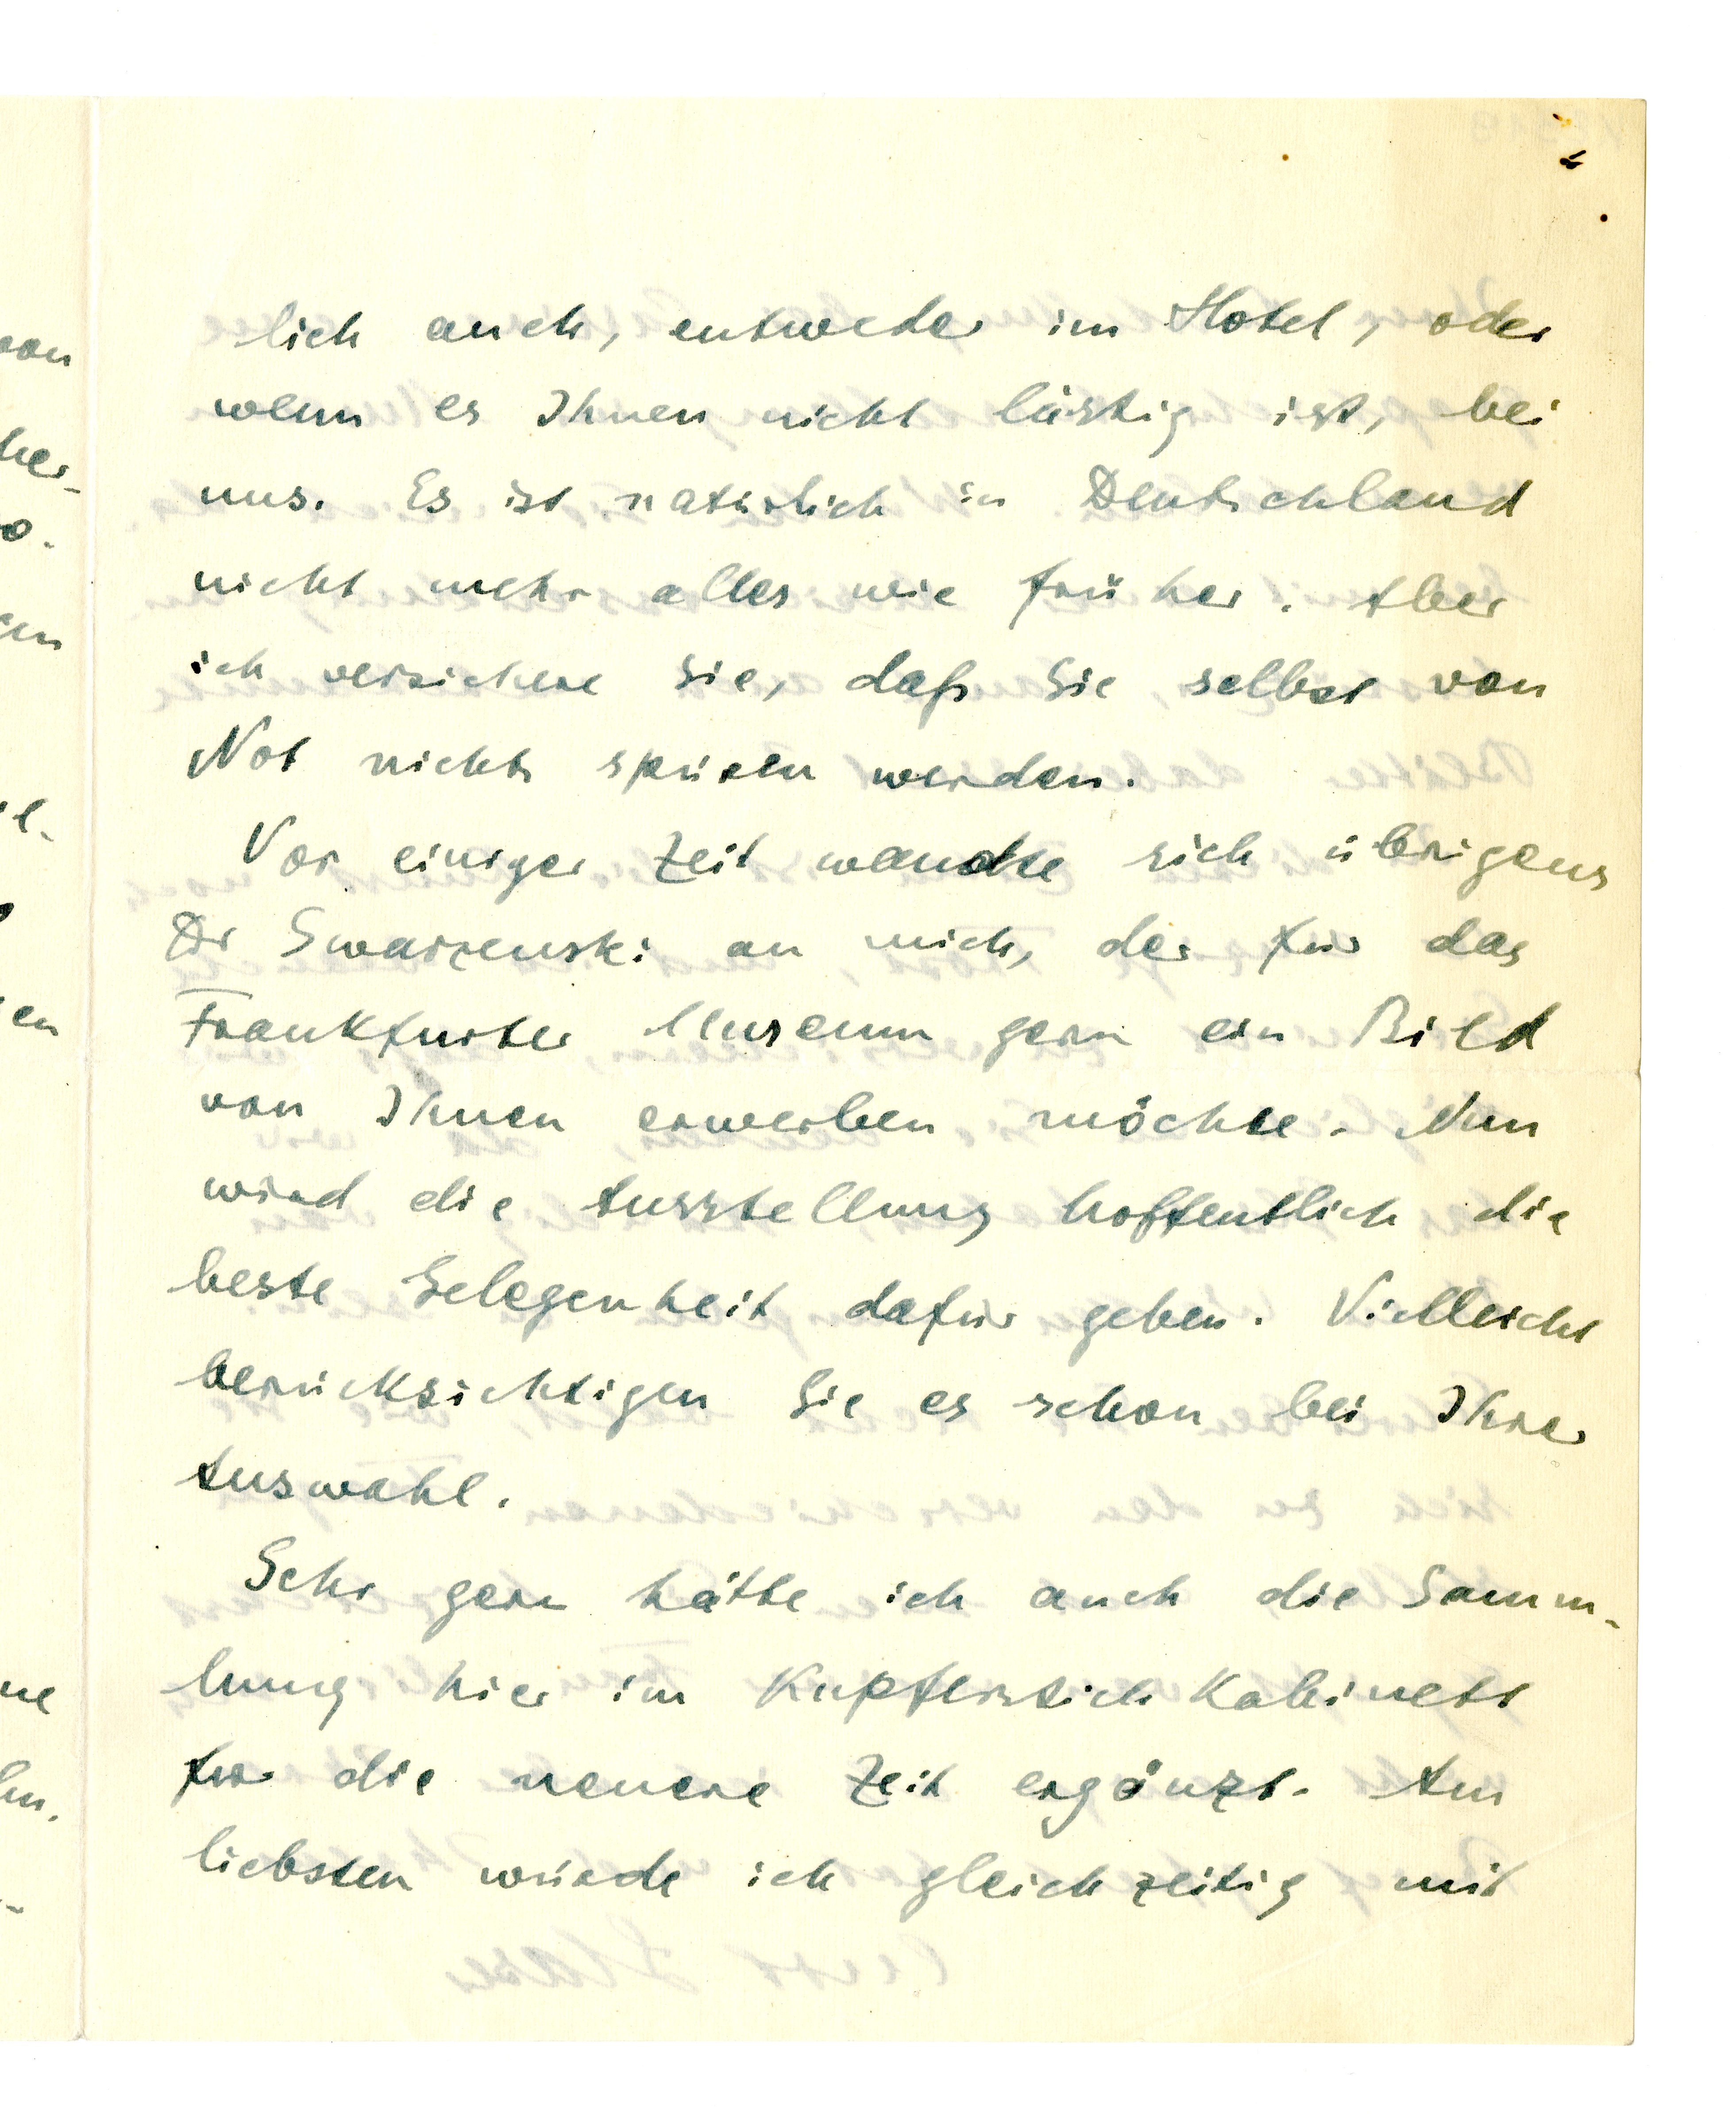 lich auch, entweder im Hotel, oder
wenn es Ihnen nicht lästig ist, bei
uns. Es ist natürlich in Deutschland
nicht mehr alles wie früher. Aber
ich versichere Sie, daß Sie selbst von
Not nichts spüren werden.
Vor einiger Zeit wandte sich übrigens
Dr Swarzenski an mich, der für das
Frankfurter Museum gern ein Bild
von Ihnen erwerben möchte. Nun
wird die Ausstellung hoffentlich die
beste Gelegenheit dafür geben. Vielleicht
berücksichtigen Sie es schon bei Ihrer
Auswahl.
Sehr gern hätte ich auch die Samm-
lung hier im Kupferstich Kabinett
für die neuere Zeit ergänzt. Am
liebsten würde ich gleichzeitig mit